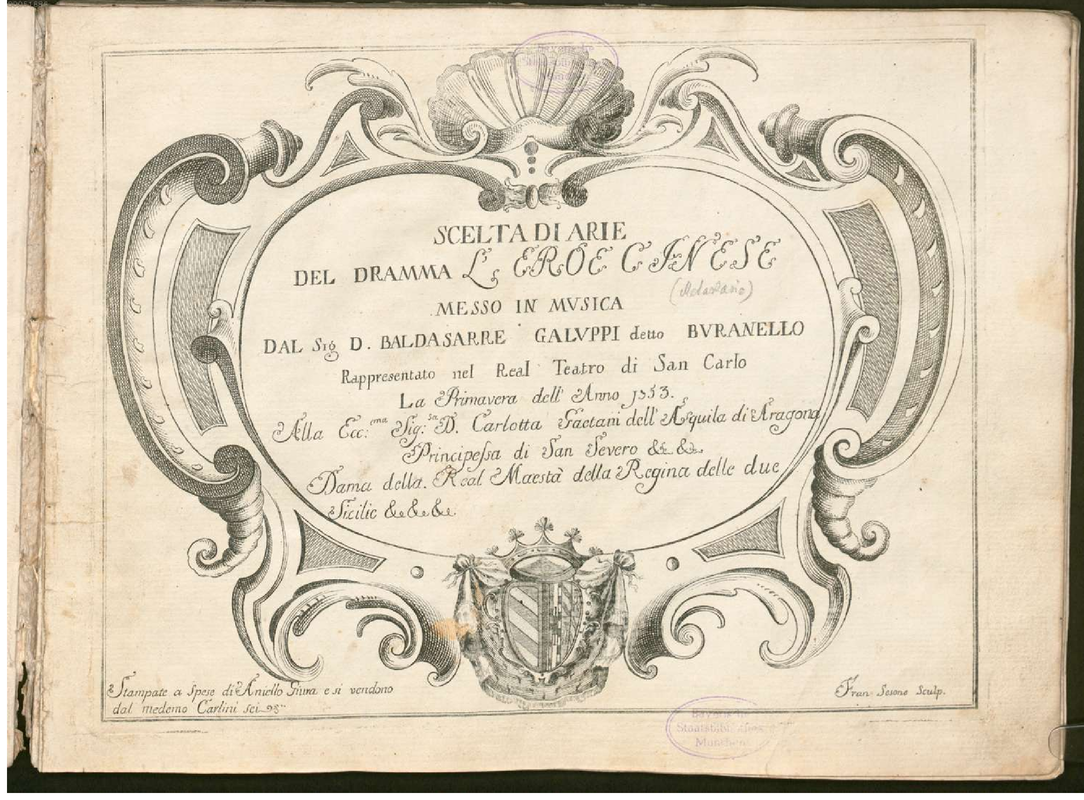 SCELTA DI ARIE
DEL DRAMMA L'EROE CINESE
MESSO IN MVSICA
DAL Sig D. BALDASARRE GALVPPI detto BVRANELLO
Rappresentato nel Real Teatro di San Carlo
La Primavera dell' Anno 1753.
Alla Ecc.ma Sig.ra D. Carlotta Gaetani dell' Aquila di Aragona
Principessa di San Severo &c &c
Dama della Real Maestà della Regina delle due
Sicilie &c &c &c
Stampate a spese di Aniello e si vendono
dal medemo Carlini sei
Fran Sesone Sculp.
Staatsbibliothek
München